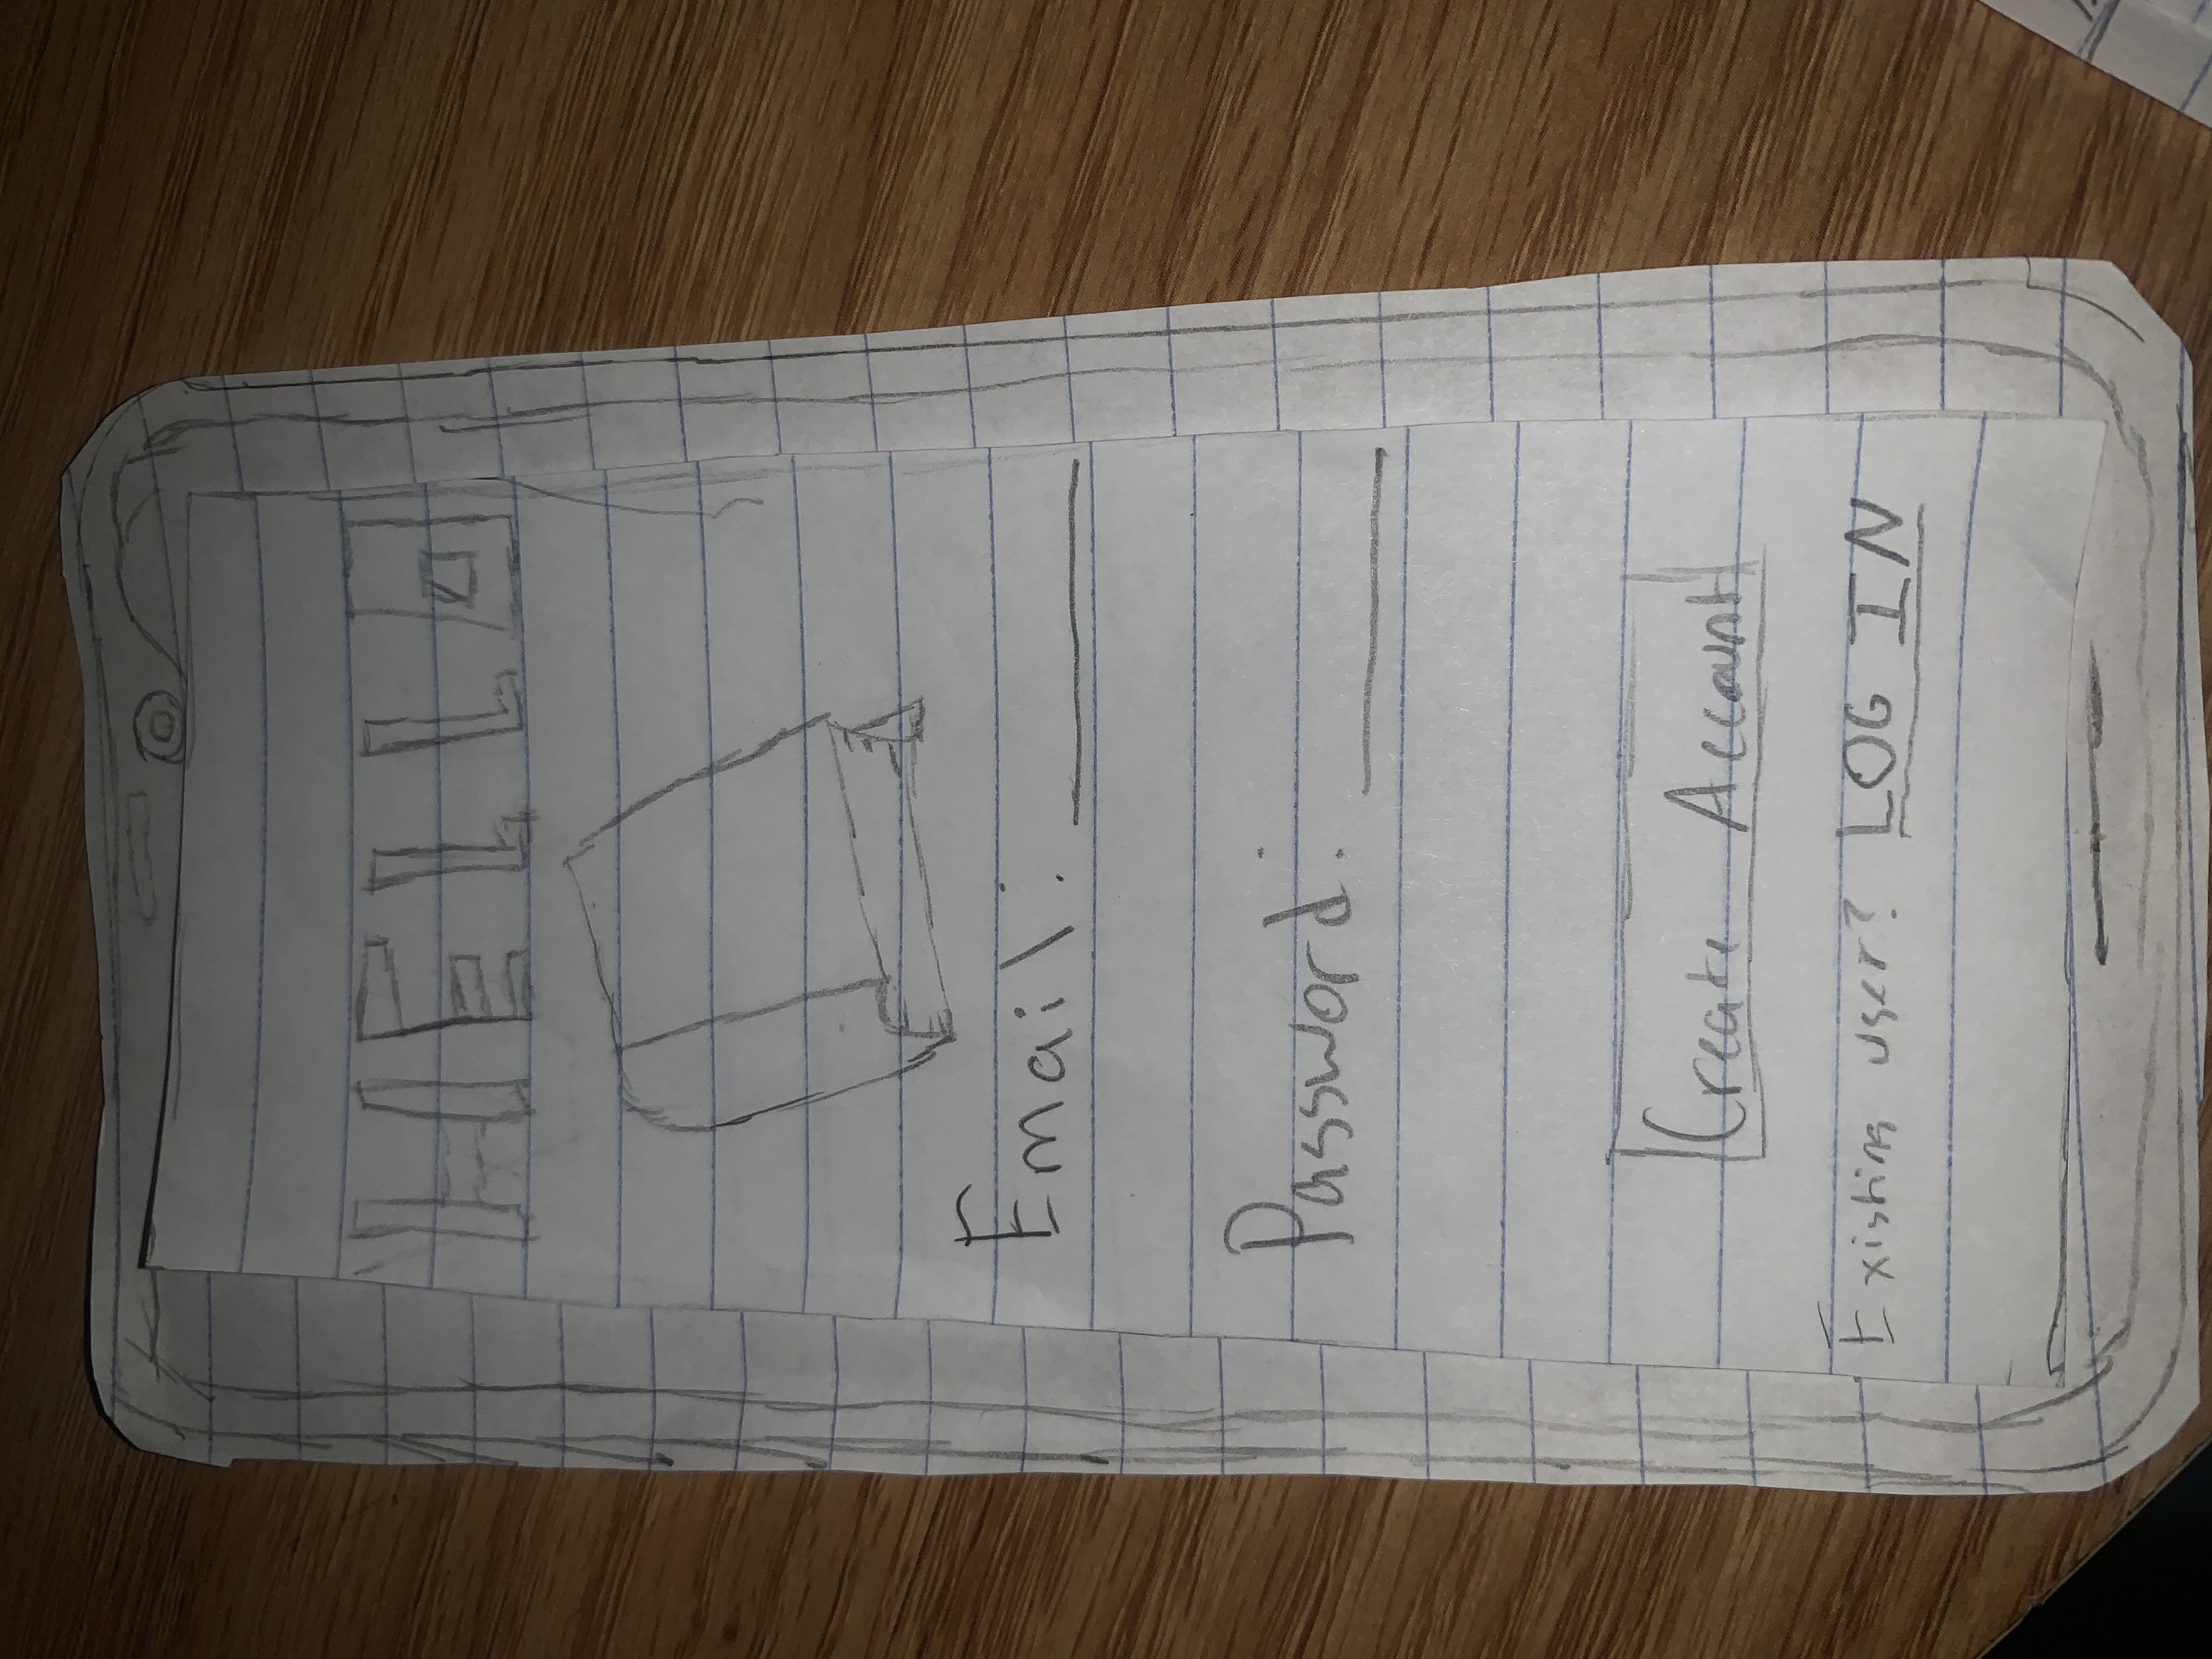 HELLO
Email:
Password:
Create Account
Existing user? LOG IN